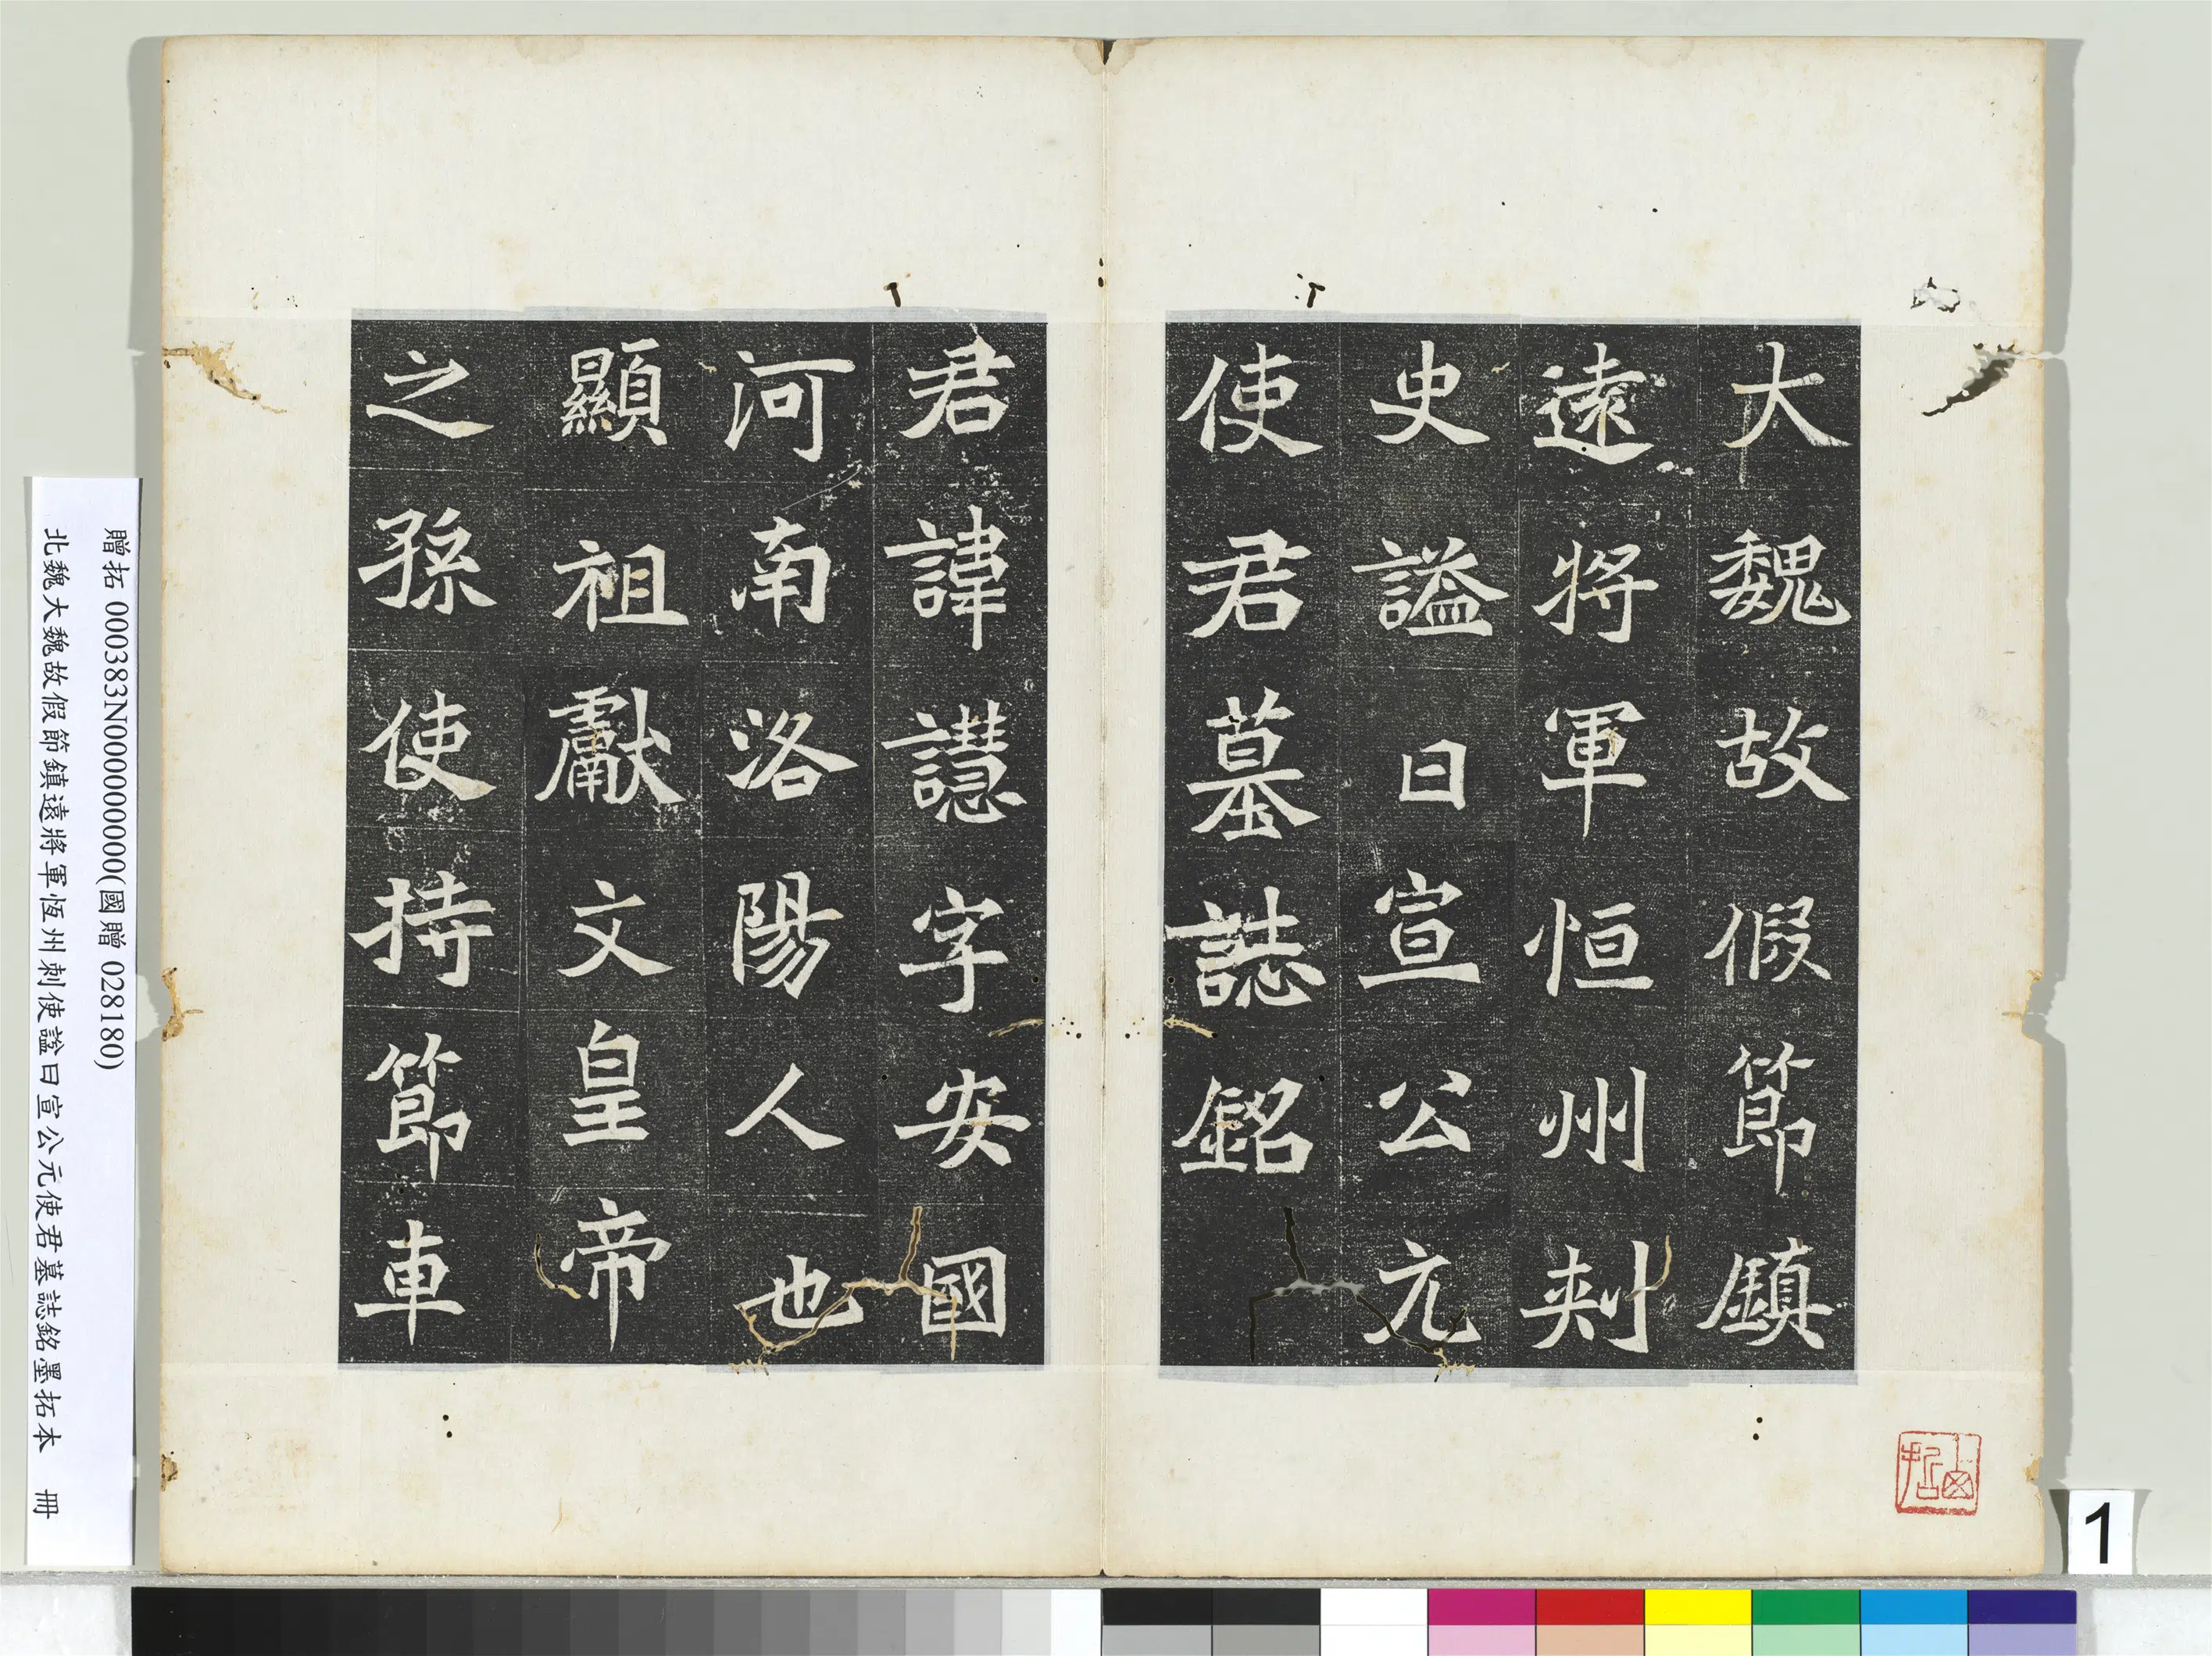 大魏故假節鎮
遠將軍恒州刺
史謚曰宣公元
使君墓誌銘
君諱譿字安國
河南洛陽人也
顯祖獻文皇帝
之孫使持節車
贈拓 000383N000000000(國贈 028180)
北魏大魏故假節鎮遠將軍恆州刺使諡曰宣公元使君墓誌銘墨拓本 冊
1